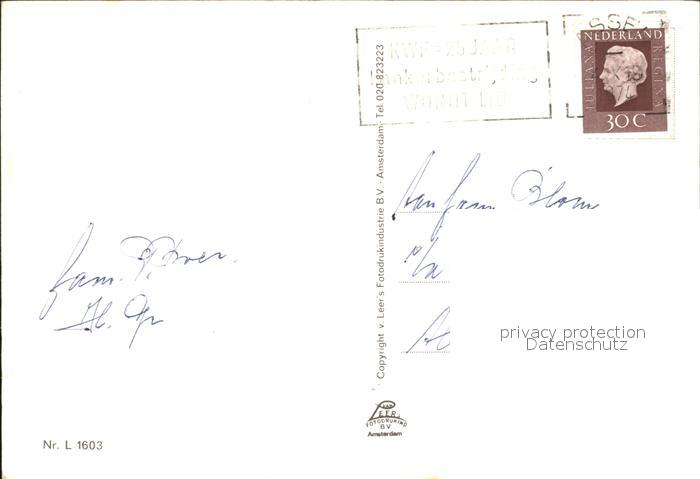 KWF = 25 JAAR
kankerbestrijding
WORDT LID
SSE
74
NEDERLAND
JULIANA REGINA
30 C
Aan fam. Blom
p/a
fam.
Copyright v. Leer's Fotodrukindustrie B.V. - Amsterdam - Tel. 020-823223
privacy protection
Datenschutz
VAN
LEER
FOTODRUKIND
B.V.
Amsterdam
Nr. L 1603